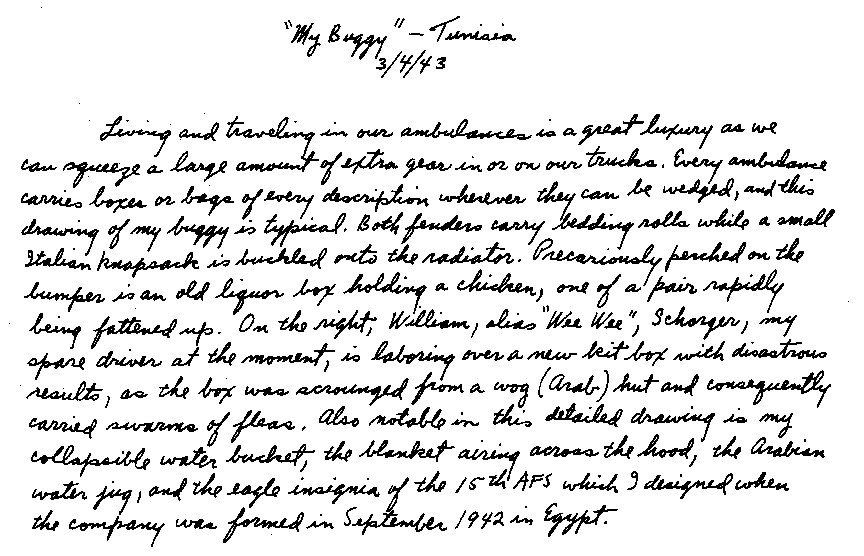 "My Buggy" – Tunisia
3/4/43
Living and traveling in our ambulances is a great luxury as we
can squeeze a large amount of extra gear in or on our trucks. Every ambulance
carries boxes or bags of every description wherever they can be wedged, and this
drawing of my buggy is typical. Both fenders carry bedding rolls while a small
Italian knapsack is buckled onto the radiator. Precariously perched on the
bumper is an old liquor box holding a chicken, one of a pair rapidly
being fattened up. On the right, William, alias "Wee Wee", Schorger, my
spare driver at the moment, is laboring over a new kit box with disastrous
results, as the box was scrounged from a wog (Arab) hut and consequently
carried swarms of fleas. Also notable in this detailed drawing is my
collapsible water bucket, the blanket airing across the hood, the Arabian
water jug, and the eagle insignia of the 15th AFS which I designed when
the company was formed in September 1942 in Egypt.